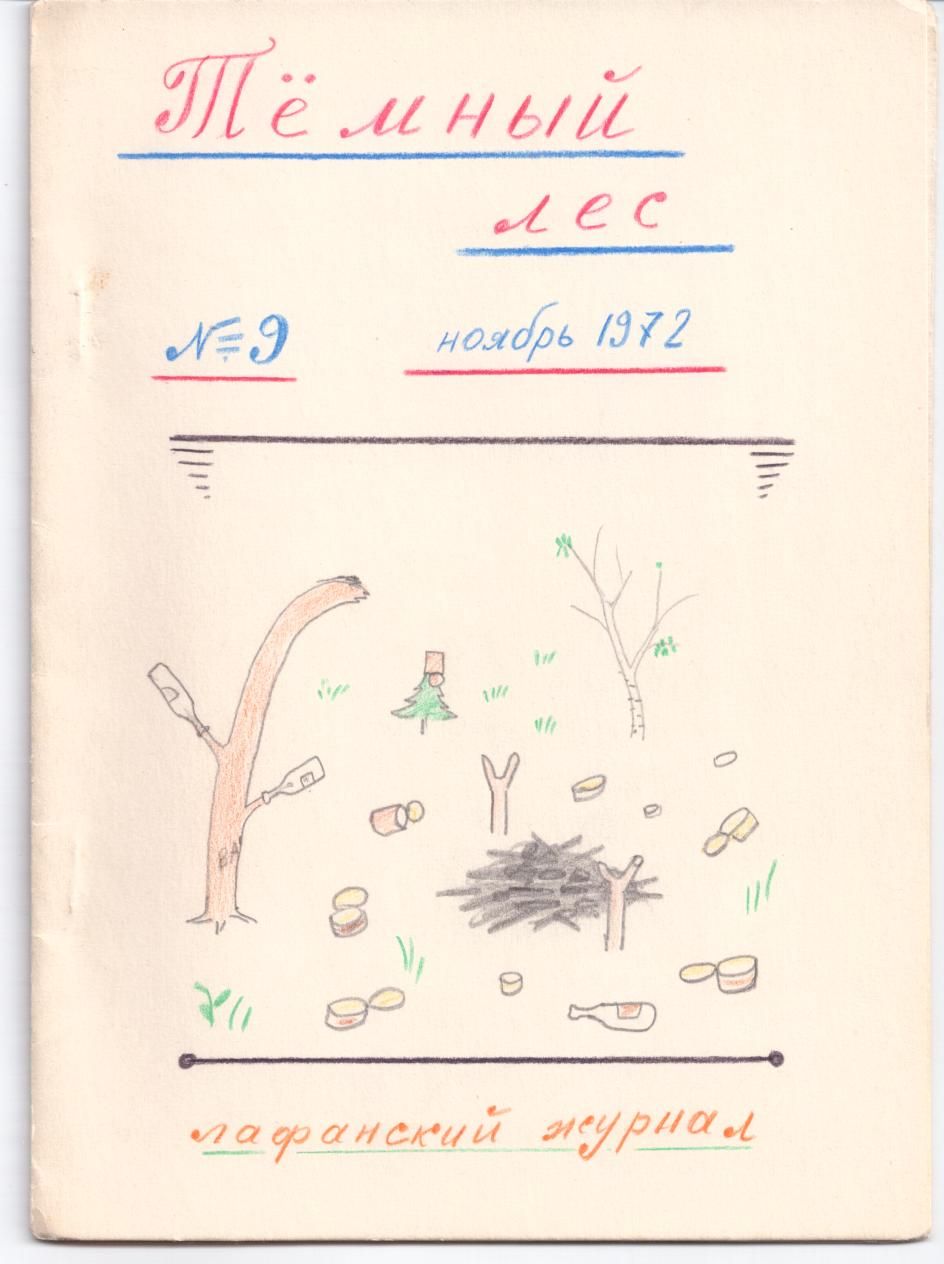 Тёмный
лес
№ 9 ноябрь 1972
лафанский журнал